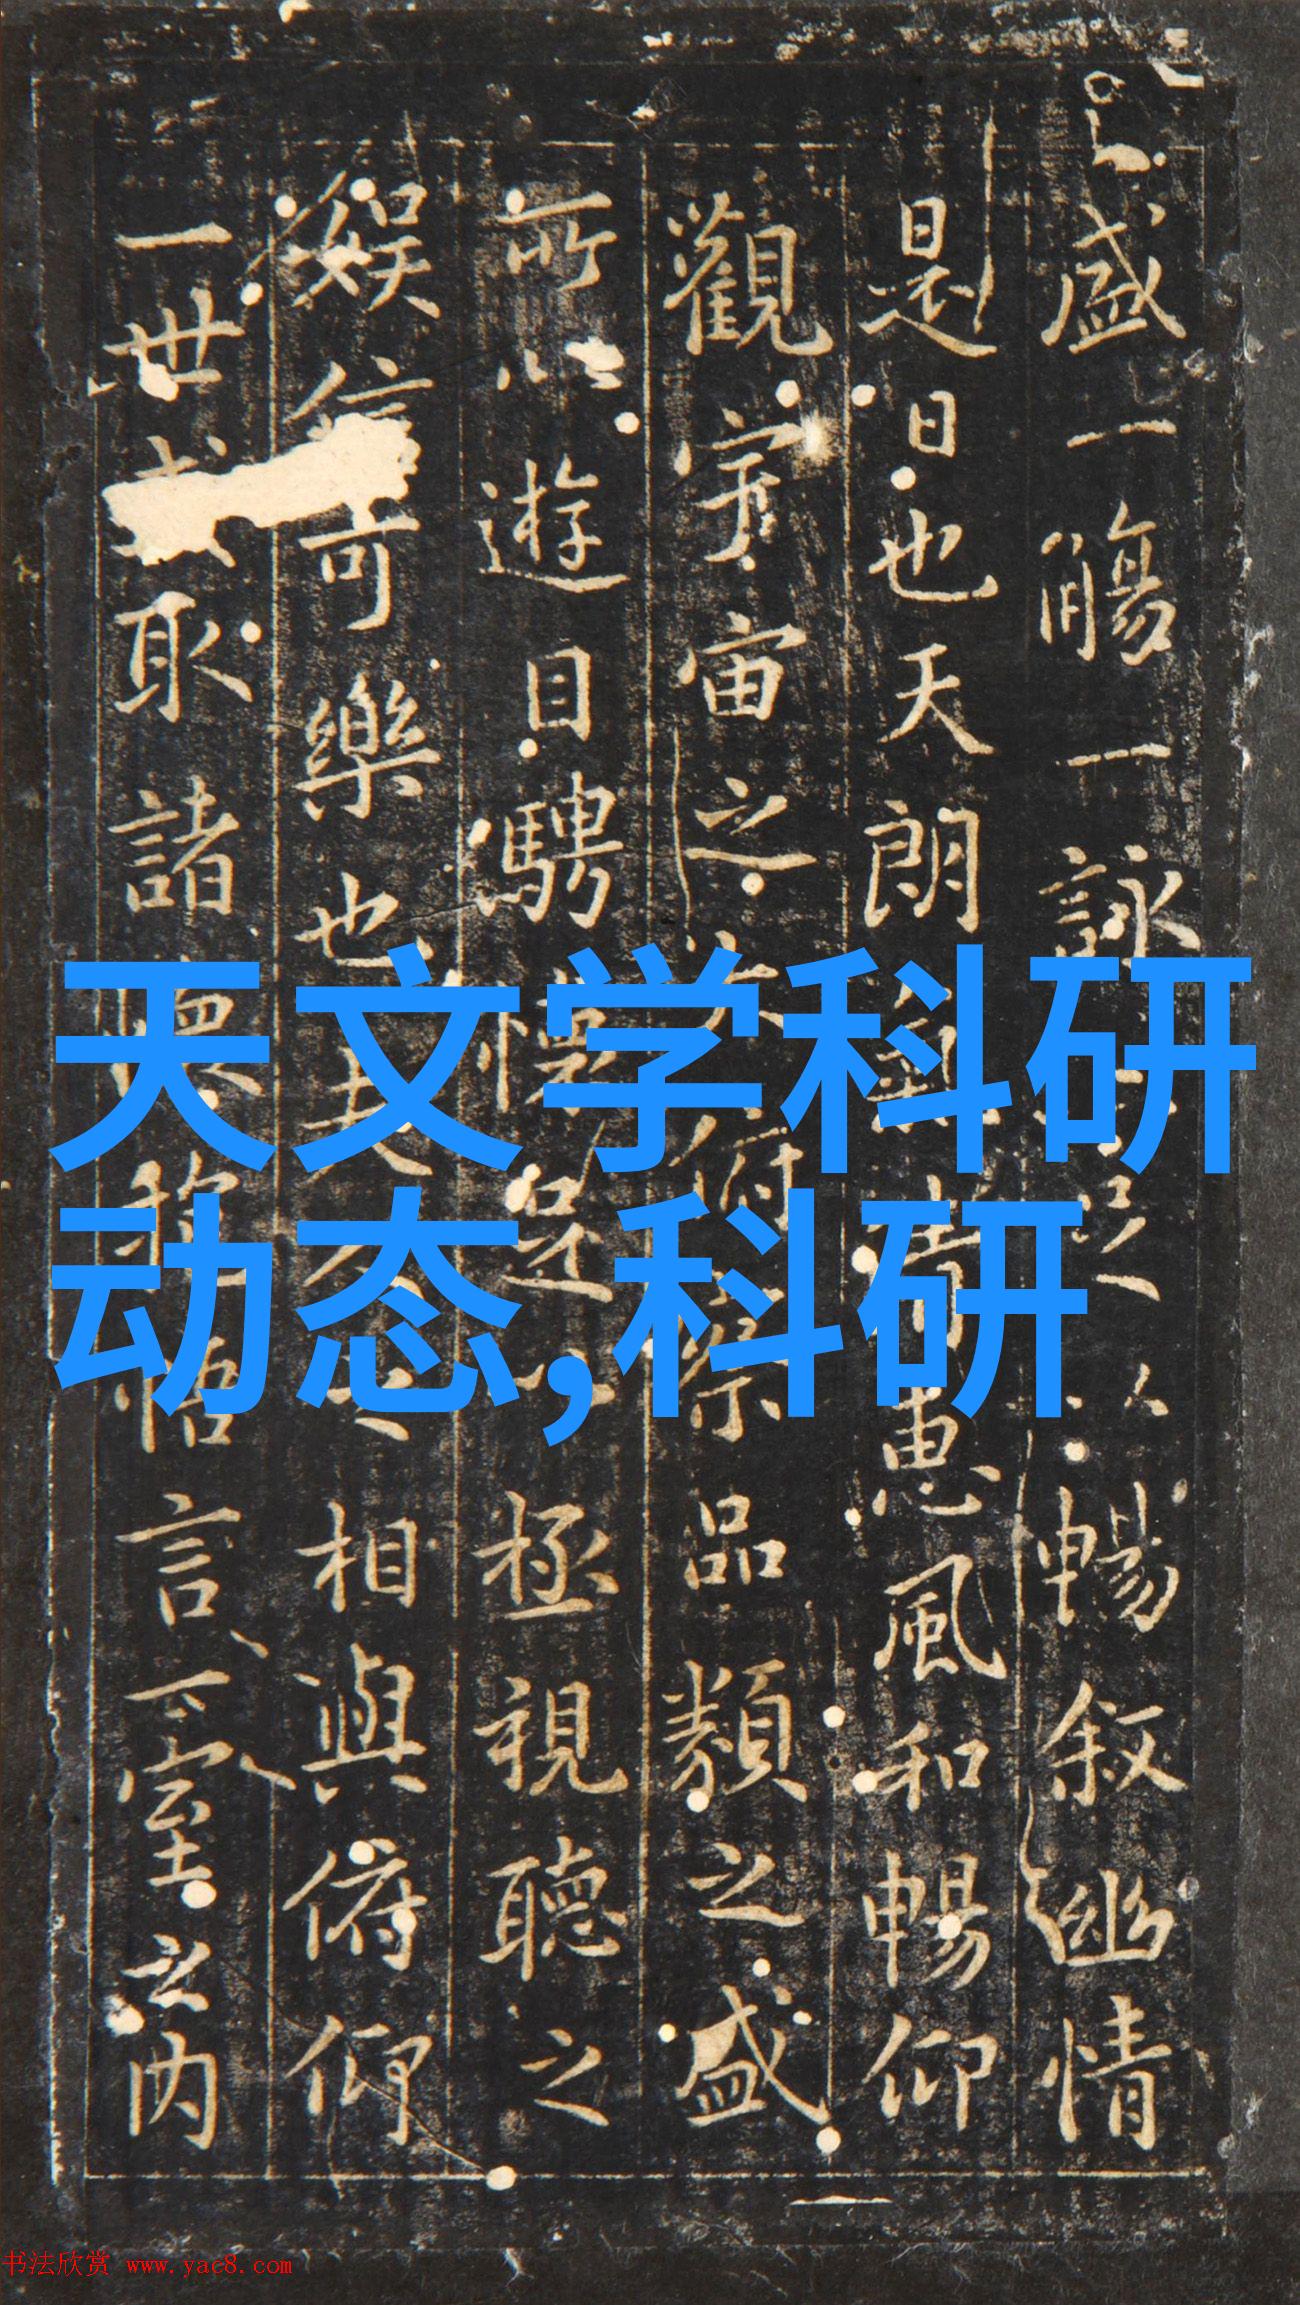 盛一觴一詠亦足以暢叙幽情
是日也天朗氣清惠風和暢仰
觀宇宙之大俯察品類之盛
所以遊目騁懷足以極視聽之
娱信可樂也夫人之相與俯仰
一世或取諸懷抱悟言一室之内
天文学科研
动态,科研
书法欣赏 www.yac8.com